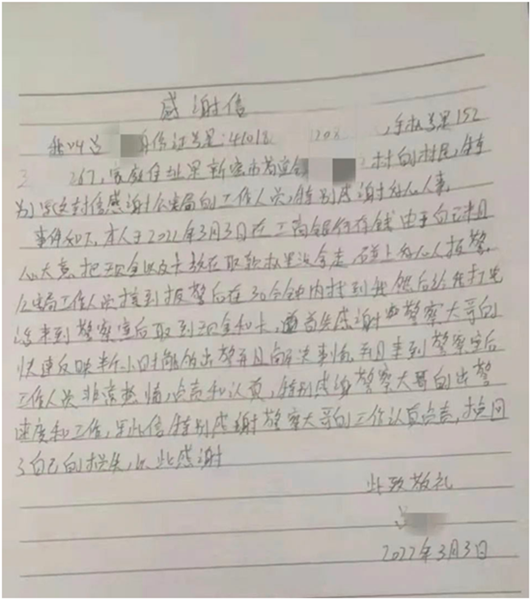 感谢信
我叫 身份证号是:41018 208 ,手机号是152
3 267,家庭住址是新密市苟堂镇 村的村民,特
别写这封信感谢公安局的工作人员,特别感谢好心人事
事件如下,本人于2022年3月3日在工商银行存钱由于自己粗
心大意,把现金以及卡放在取款机里没拿走 碰上好心人报警,
公安局工作人员接到报警后在30分钟内找到我然后给我打电
话来到警察室后取到现金和卡,首先感谢警察大哥的
快速反映半小时能够出警并且解决事情,并且来到警察室后
工作人员非常热情,负责和认真,特别感谢警察大哥的出警
速度和工作,写此信特别感谢警察大哥的工作认真负责,挽回
了自己的损失,以此感谢
此致敬礼
2022年3月3日